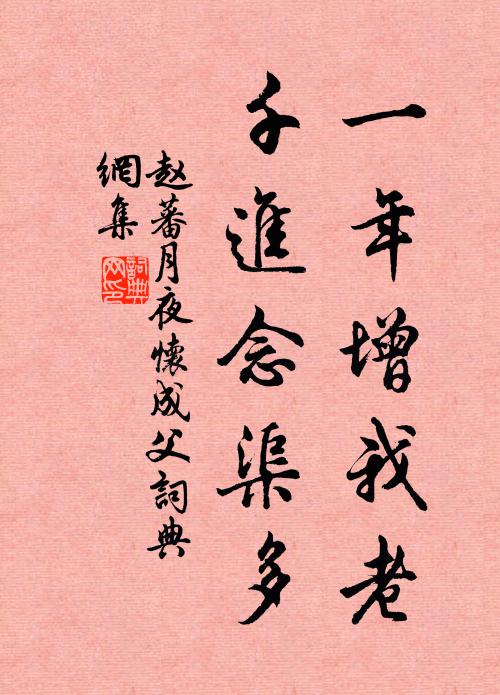 一年增我老
千進念渠多
赵蕃月夜懷成父詞典
網集
詞典
网印